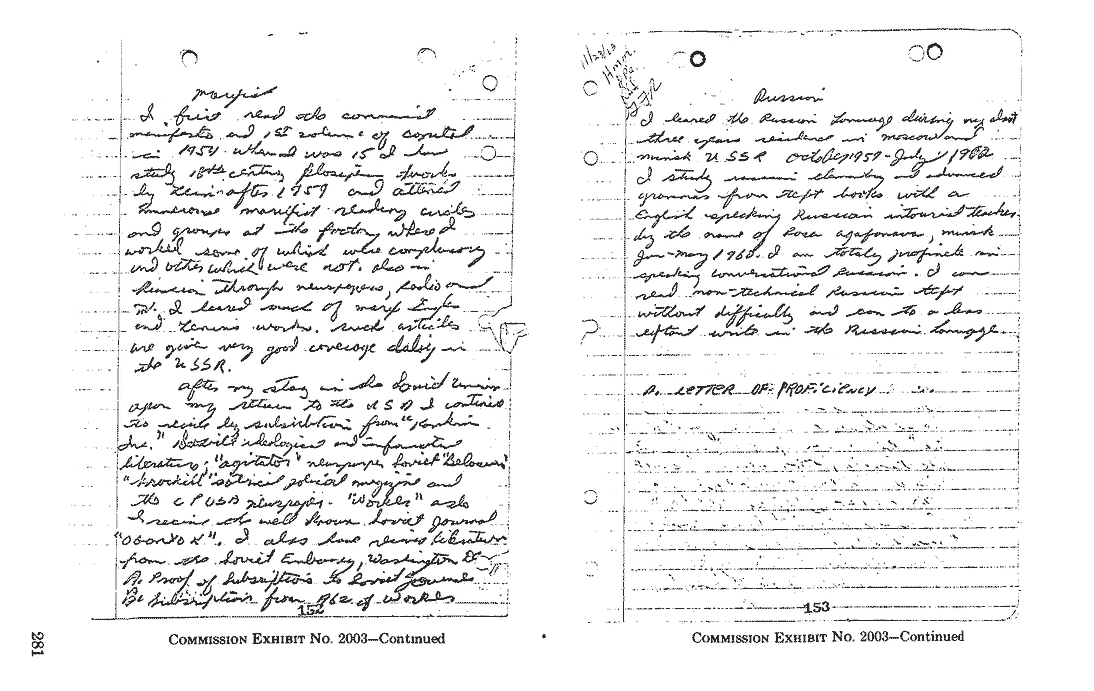 Marxist
I first read the communist
manifesto and 1st volume of capital
in 1954 when I was 15 I have
study 18th century
by Lenin after 1959 and attened
numerous marxist reading circles
and groups at the factory where I
worked some of which were compulsory
and other which were not. also in
Russia through newspapers, radio and
T.V. I leared much of marx Engles
and Lenins works. such articles
are given very good coverage daliy in
the USSR.
after my stay in the Soviet Union
upon my return to the USA I continued
to recive by subsiribtion from
Inc." ideological and
literature; "agitator" newspaper Soviet
"krockill" satirical political magizine and
the CPUSA newspaper. "Worker" also
I recive the well known Soviet Journal
I also have
from the Soviet Embassy, Washington D.C.
A. Proof of Subsriptions to Soviet
B. Subscription from 1962 of Worker
152
COMMISSION EXHIBIT No. 2003—Continued
11/23/63
Russian
I leared the Russian during my
three years residence in moscow and
minsk USSR 1962
I study russian elementry and advanced
grammer from text books with a
English speaking Russian intourist teacher
by the name of Rosa agafonava, minsk
Jan-may 1960. I am totaly in
speaking conversational Russian. I can
read non-technical Russian text
without difficulty and can to a less
extent write in the Russian
A. LETTER OF PROFICIENCY
153
COMMISSION EXHIBIT No. 2003—Continued
281